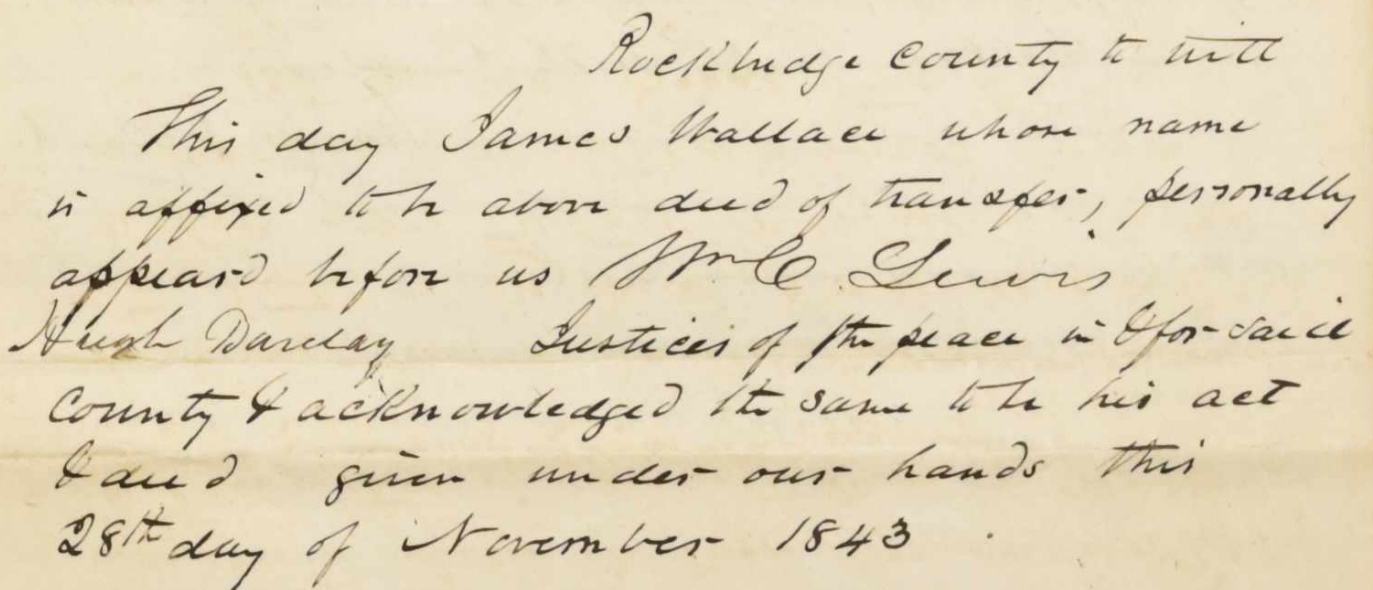 Rockbridge County to witt
This day James Wallace whose name
is affixed to he above deed of transfer, personally
appeard before us Wm C. Lewis
Hugh Barclay Justices of the peace in & for said
County & acknowledged the same to be his act
& deed given under our hands this
28th day of November 1843